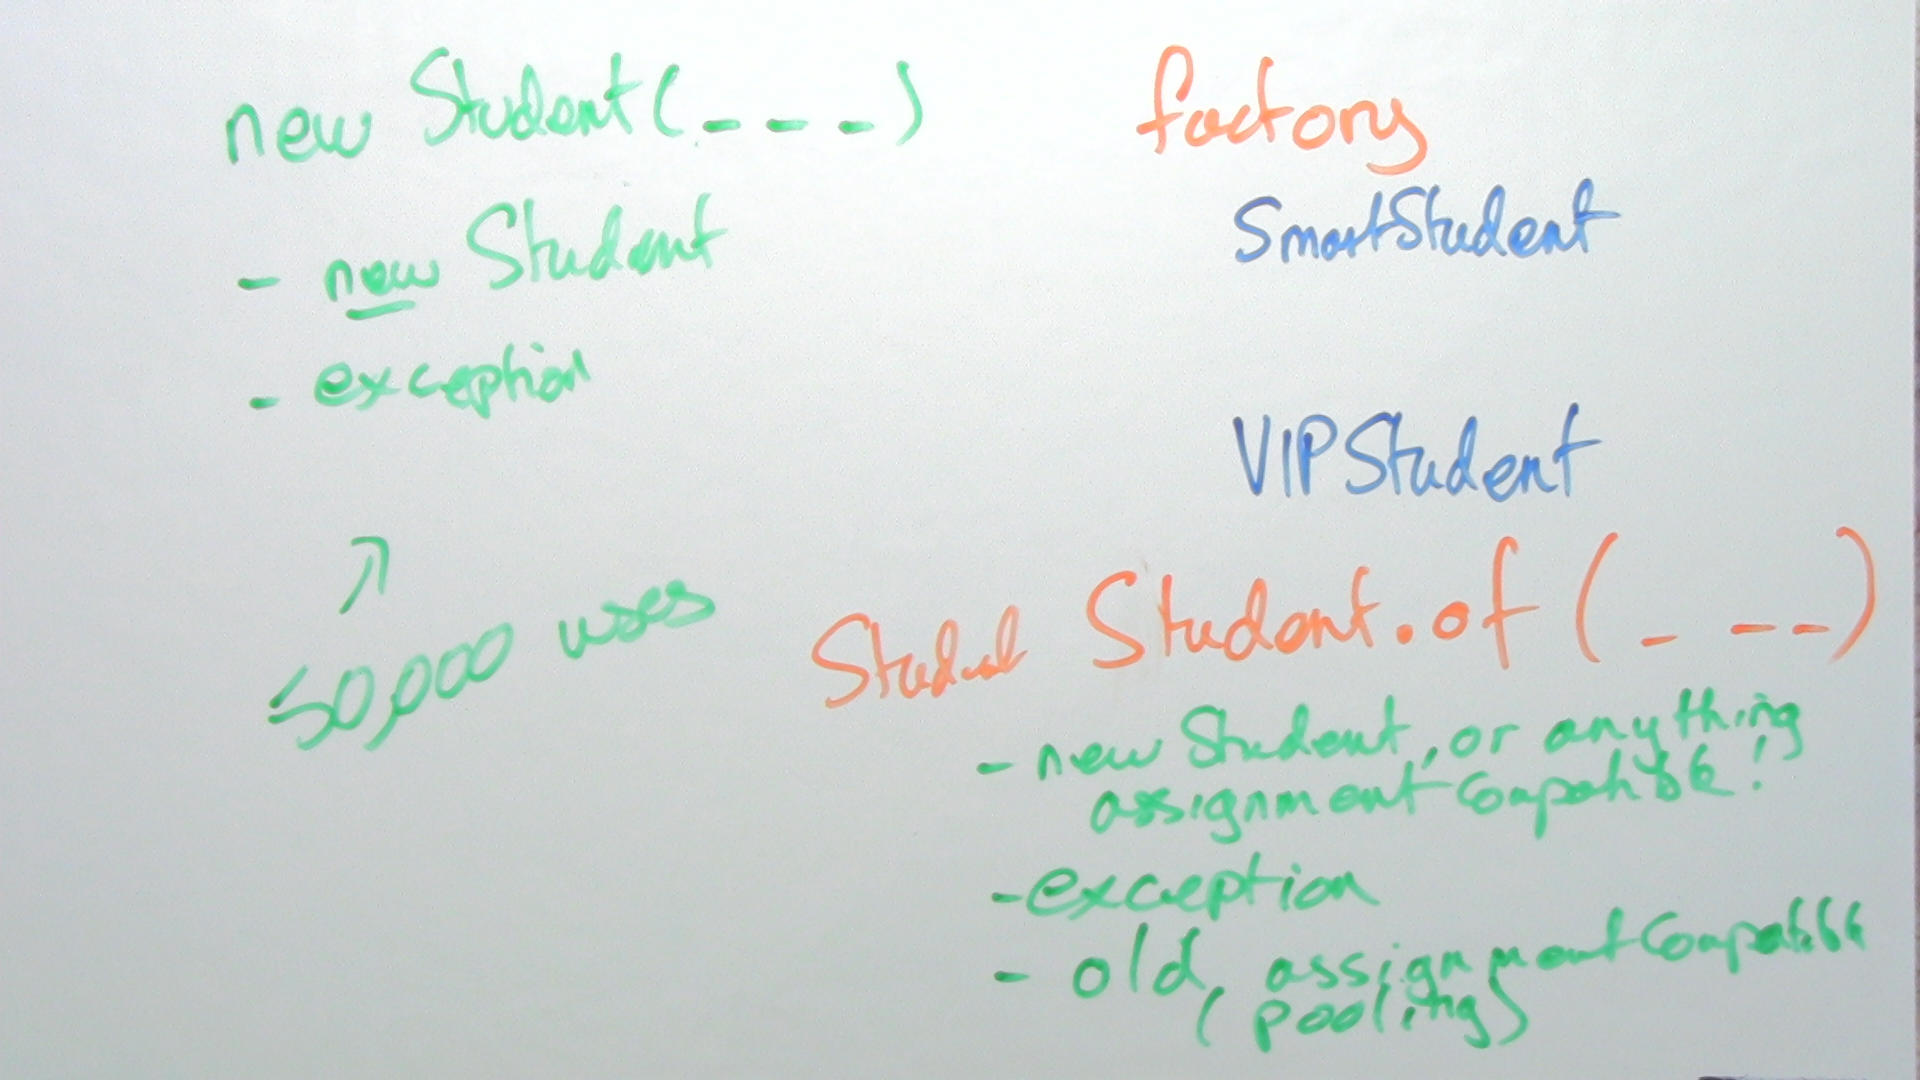 new Student(_ _ _)
- new Student
- exception
↗
50,000 uses
factory
SmartStudent
VIPStudent
Student Student.of (_ _ _)
- new Student, or anything
assignment compatible!
- exception
- old, assignment compatible
(pooling)